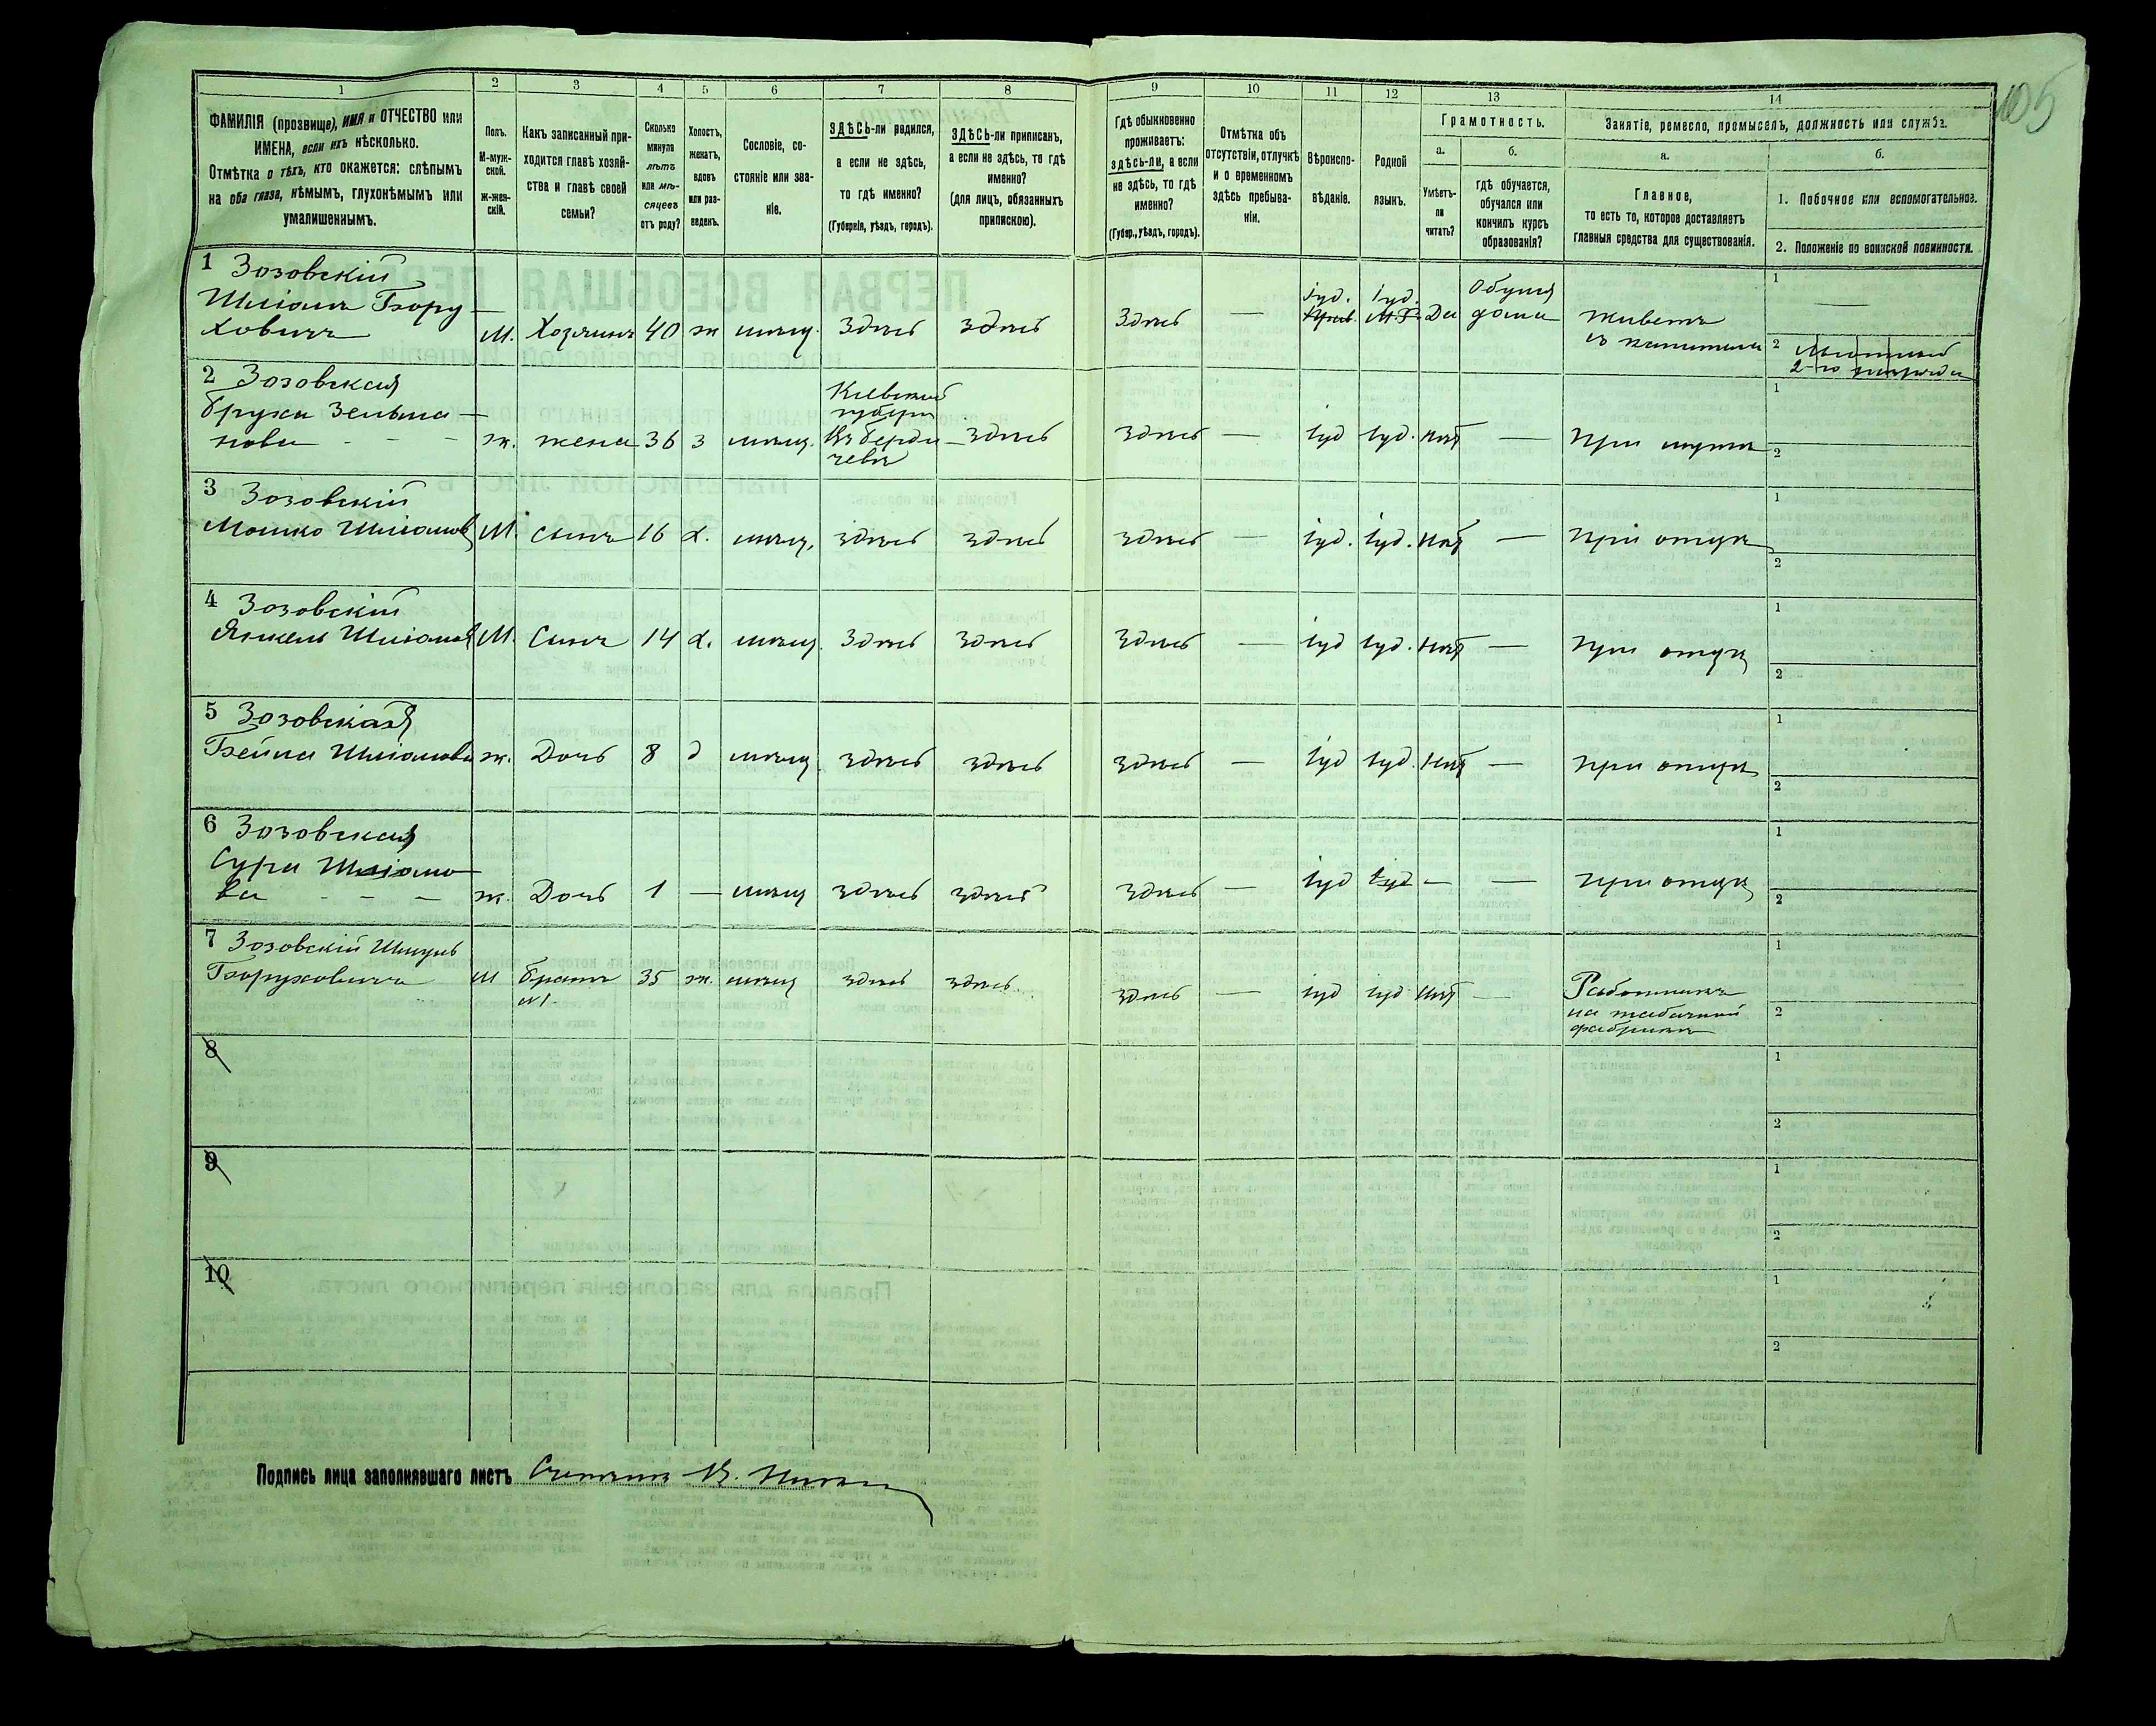 105
1
2
3
4
5
6
7
8
9
10
11
12
13
14
ФАМИЛІЯ (прозвище), ИМЯ и ОТЧЕСТВО или
ИМЕНА, если ихъ нѣсколько.
Отмѣтка о тѣхъ, кто окажется: слѣпымъ
на оба глаза, нѣмымъ, глухонѣмымъ или
умалишеннымъ.
Полъ.
М-муж-
ской.
Ж-жен-
скій.
Какъ записанный при-
ходится главѣ хозяй-
ства и главѣ своей
семьи?
Сколько
минуло
лѣтъ
или мѣ-
сяцевъ
отъ роду?
Холостъ,
женатъ,
вдовъ
или раз-
веденъ.
Сословіе, со-
стояніе или зва-
ніе.
ЗДѢСЬ-ли родился,
а если не здѣсь,
то гдѣ именно?
(Губернія, уѣздъ, городъ).
ЗДѢСЬ-ли приписанъ,
а если не здѣсь, то гдѣ
именно?
(для лицъ, обязанныхъ
припискою).
Гдѣ обыкновенно
проживаетъ:
здѣсь-ли, а если
не здѣсь, то гдѣ
именно?
(Губер., уѣздъ, городъ).
Отмѣтка объ
отсутствіи, отлучкѣ
и о временномъ
здѣсь пребыва-
ніи.
Вѣроиспо-
вѣданіе.
Родной
языкъ.
Грамотность.
а.
Умѣетъ-
ли
читать?
б.
гдѣ обучается,
обучался или
кончилъ курсъ
образованія?
Занятіе, ремесло, промыселъ, должность или служба.
а.
Главное,
то есть то, которое доставляетъ
главныя средства для существованія.
б.
1. Побочное или вспомогательное.
2. Положеніе по воинской повинности.
1 Зозовскій
Шліома Бору-
ховичъ М. Хозяинъ 40 ж мѣщ. Здѣсь здѣсь Здѣсь — іуд. іуд. Да
дома
Живетъ
съ капитала
1 —
2
2-го разряда
2 Зозовская
Бруха Зельма-
нова - - - ж. жена 36 з мѣщ.
Кіевской
губерн
въ Берди-
чевѣ
здѣсь здѣсь — іуд іуд. нѣт — При мужѣ
1
2
3 Зозовскій
Мошко Шліомов М. сынъ 16 х. мѣщ. здѣсь здѣсь здѣсь — іуд. іуд. нѣт — при отцѣ
1
2
4 Зозовскій
Янкель Шліомов М. Сынъ 14 х. мѣщ. Здѣсь Здѣсь Здѣсь — іуд іуд. нѣт — при отцѣ
1
2
5 Зозовская
Бейла Шліомова ж. Дочь 8 д мѣщ. здѣсь здѣсь здѣсь — іуд іуд. нѣт — при отцѣ
1
2
6 Зозовская
Сура Шліомо-
ва - - - ж. Дочь 1 — мѣщ здѣсь здѣсь здѣсь — іуд іуд — — при отцѣ
1
2
7 Зозовскій Шмуль
Боруховичъ М братъ 35 ж. мѣщ здѣсь здѣсь. здѣсь — іуд іуд нѣт —
№1.
Работникъ
на табачной
фабрикѣ
1
2
8
1
2
9
1
2
10
1
2
Подпись лица заполнявшаго листъ Счетчикъ